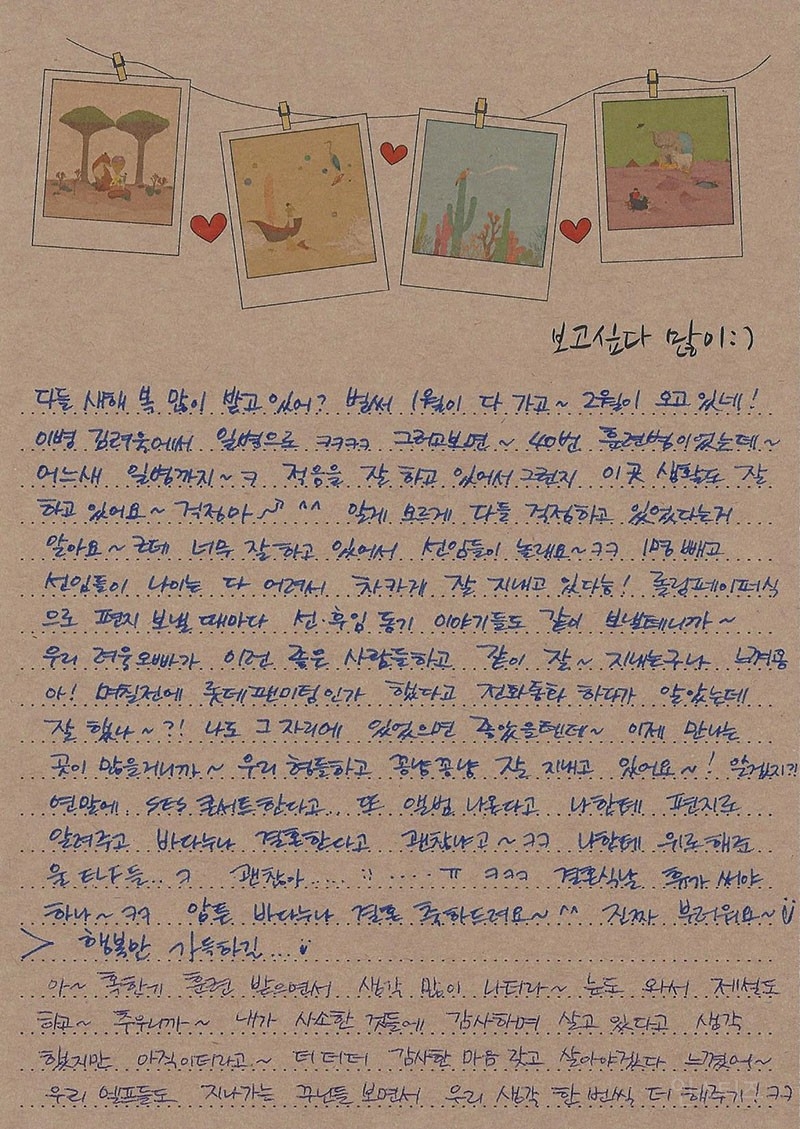 보고싶다 많이:)
다들 새해 복 많이 받고 있어? 벌써 1월이 다 가고~ 2월이 오고 있네!
이병 김려욱에서 일병으로 ㅋㅋㅋㅋ 그러고보면~ 40번 훈련병이었는데~
어느새 일병까지~ㅋ 적응을 잘 하고 있어서 그런지 이곳 생활도 잘
하고 있어요~ 걱정마♪ ^^ 알게 모르게 다들 걱정하고 있었다는거
알아요~ 근데 너무 잘하고 있어서 선임들이 놀래요~ㅋㅋ 1명 빼고
선임들이 나이는 다 어려서 착하게 잘 지내고 있다능! 롤링페이퍼식
으로 편지 보낼 때마다 선·후임 동기 이야기들도 같이 보낼테니까~
우리 려욱오빠가 이런 좋은 사람들하고 같이 잘~ 지내는구나 느껴용
아! 며칠전에 롯데팬미팅인가 했다고 전화통화 하다가 알았는데
잘 했나~?! 나도 그 자리에 있었으면 좋았을텐데~ 이제 만나는
곳이 많을거니까~ 우리 형들하고 꽁냥꽁냥 잘 지내고 있어요~! 알겠지?!
연말에 SES 콘서트한다고.. 또 앨범 나온다고 나한테 편지로
알려주고 바다누나 결혼한다고 괜찮냐고~ㅋㅋ 나한테 위로해준
울 ㅋㅋ 괜찮아..... :: .... ㅠ ㅋㅋㅋ 결혼식날 휴가 써야
하나~ㅋㅋ 암튼 바다누나 결혼 축하드려요~^^ 진짜 부러워요~
> 행복만 가득하길...
아~ 혹한기 훈련 받으면서 생각 많이 나더라~ 눈도 와서 제설도
하고~ 추우니까~ 내가 사소한 것들에 감사하며 살고 있다고 생각
했지만 아직이더라고~ 더더더 감사한 마음 갖고 살아야겠다 느꼈어~
우리 엘프들도 지나가는 군인들 보면서 우리 생각 한 번씩 더 해주기! ㅋㅋ